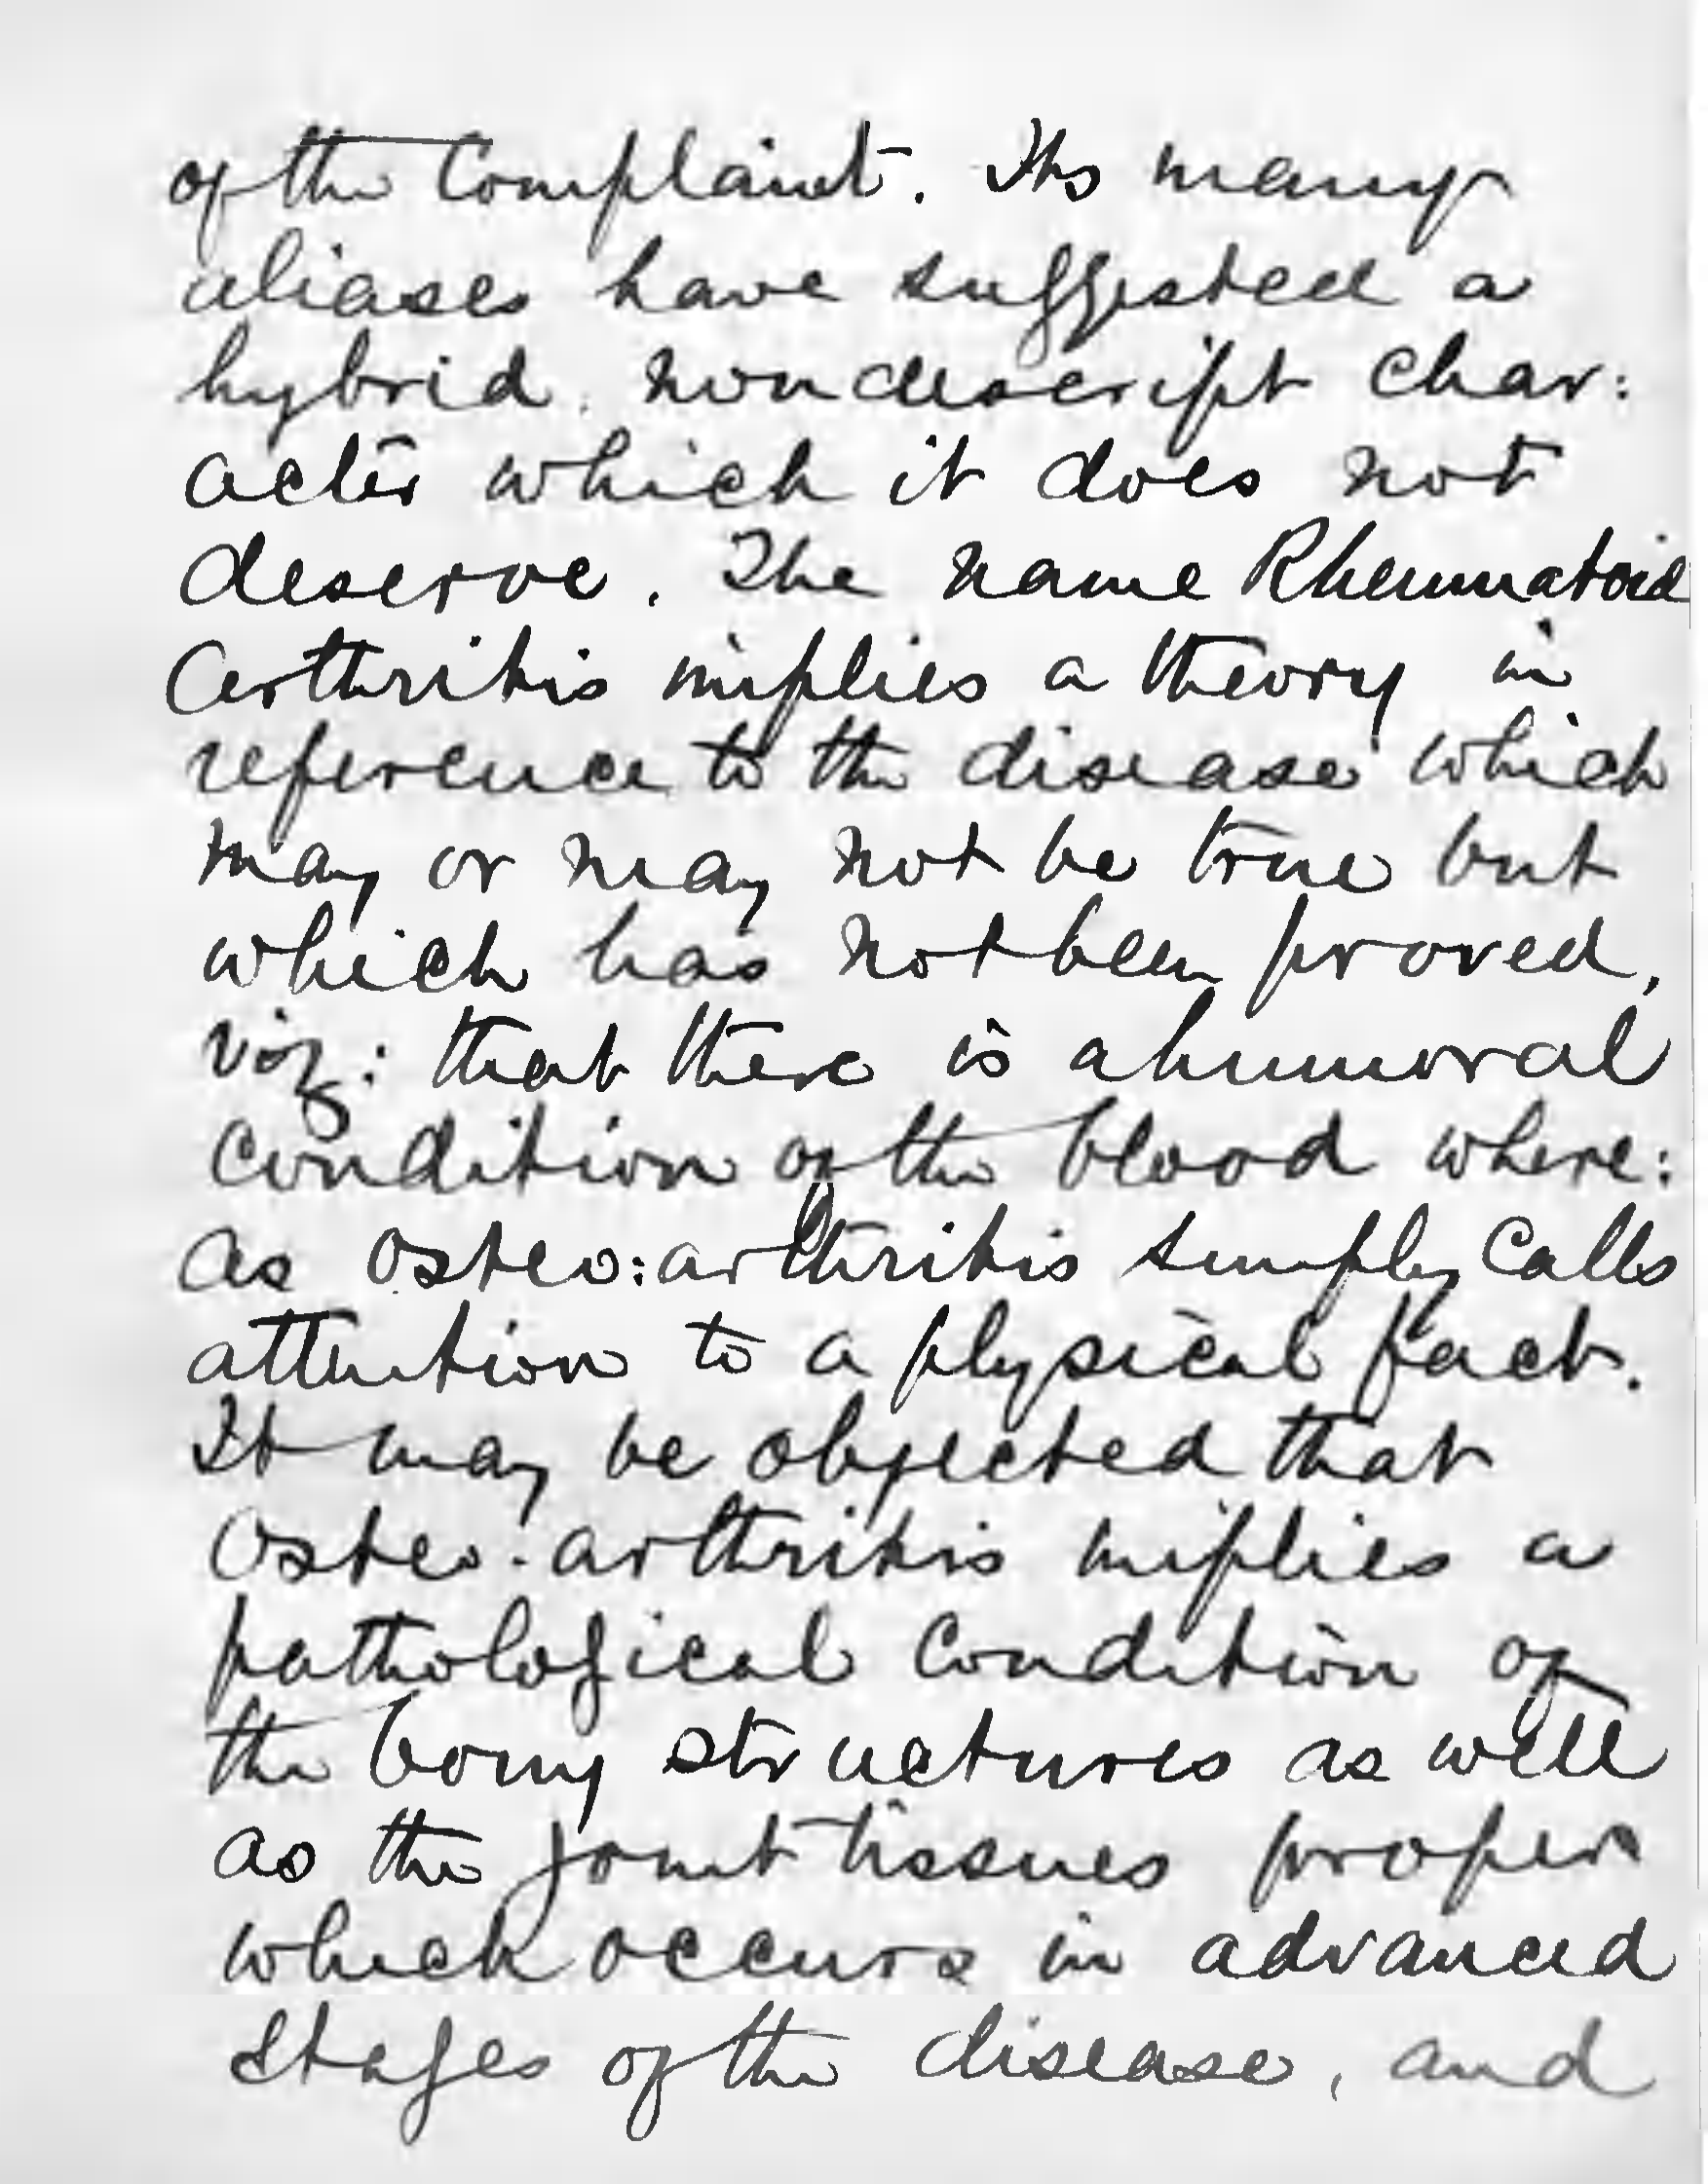 of the Complaint. Its many
aliases have suggested a
hybrid, nondescript char:
acter which it does not
deserve. The name Rheumatoid
Arthritis implies a theory in
reference to the disease which
may or may not be true but
which has not been proved,
viz: that there is a humoral
condition of the blood where:
as Osteo:arthritis simply calls
attention to a physical fact.
It may be objected that
Osteo-arthritis implies a
pathological condition of
the bony structures as well
as the joint tissues proper
which occurs in advanced
stages of the disease, and